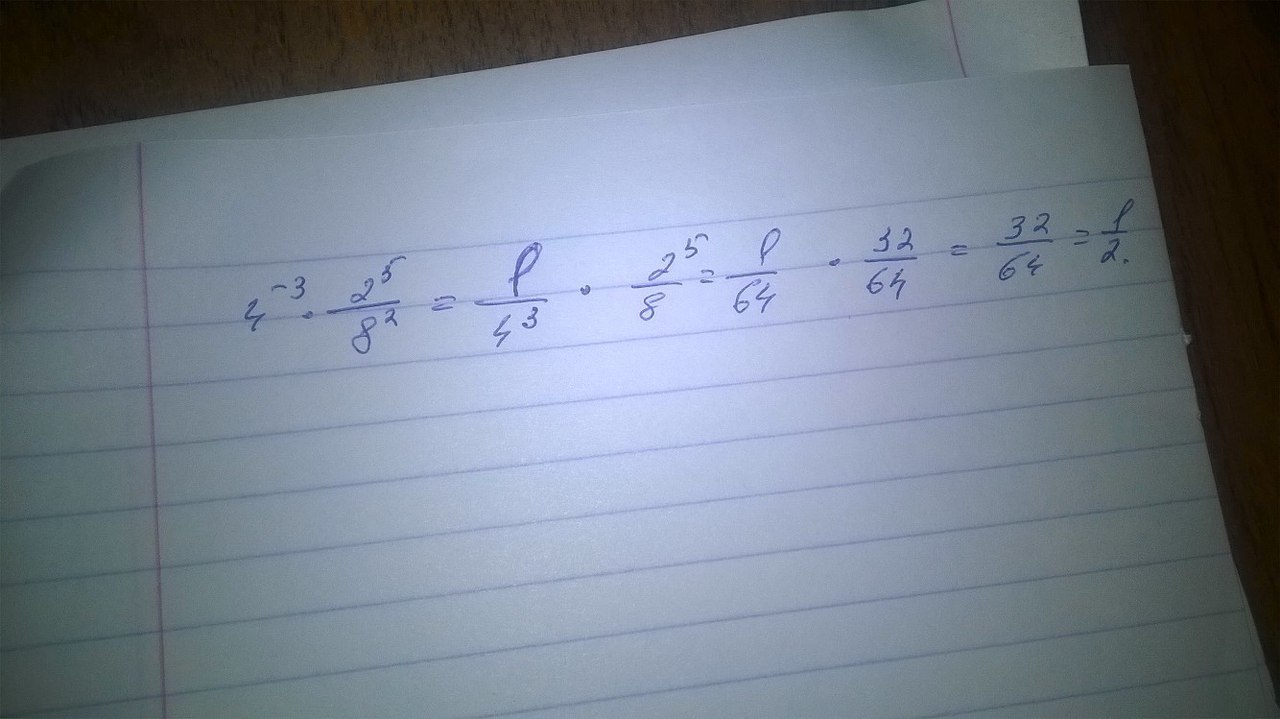 4⁻³ · 2⁵/8² = 1/4³ · 2⁵/8 = 1/64 · 32/64 = 32/64 = 1/2.